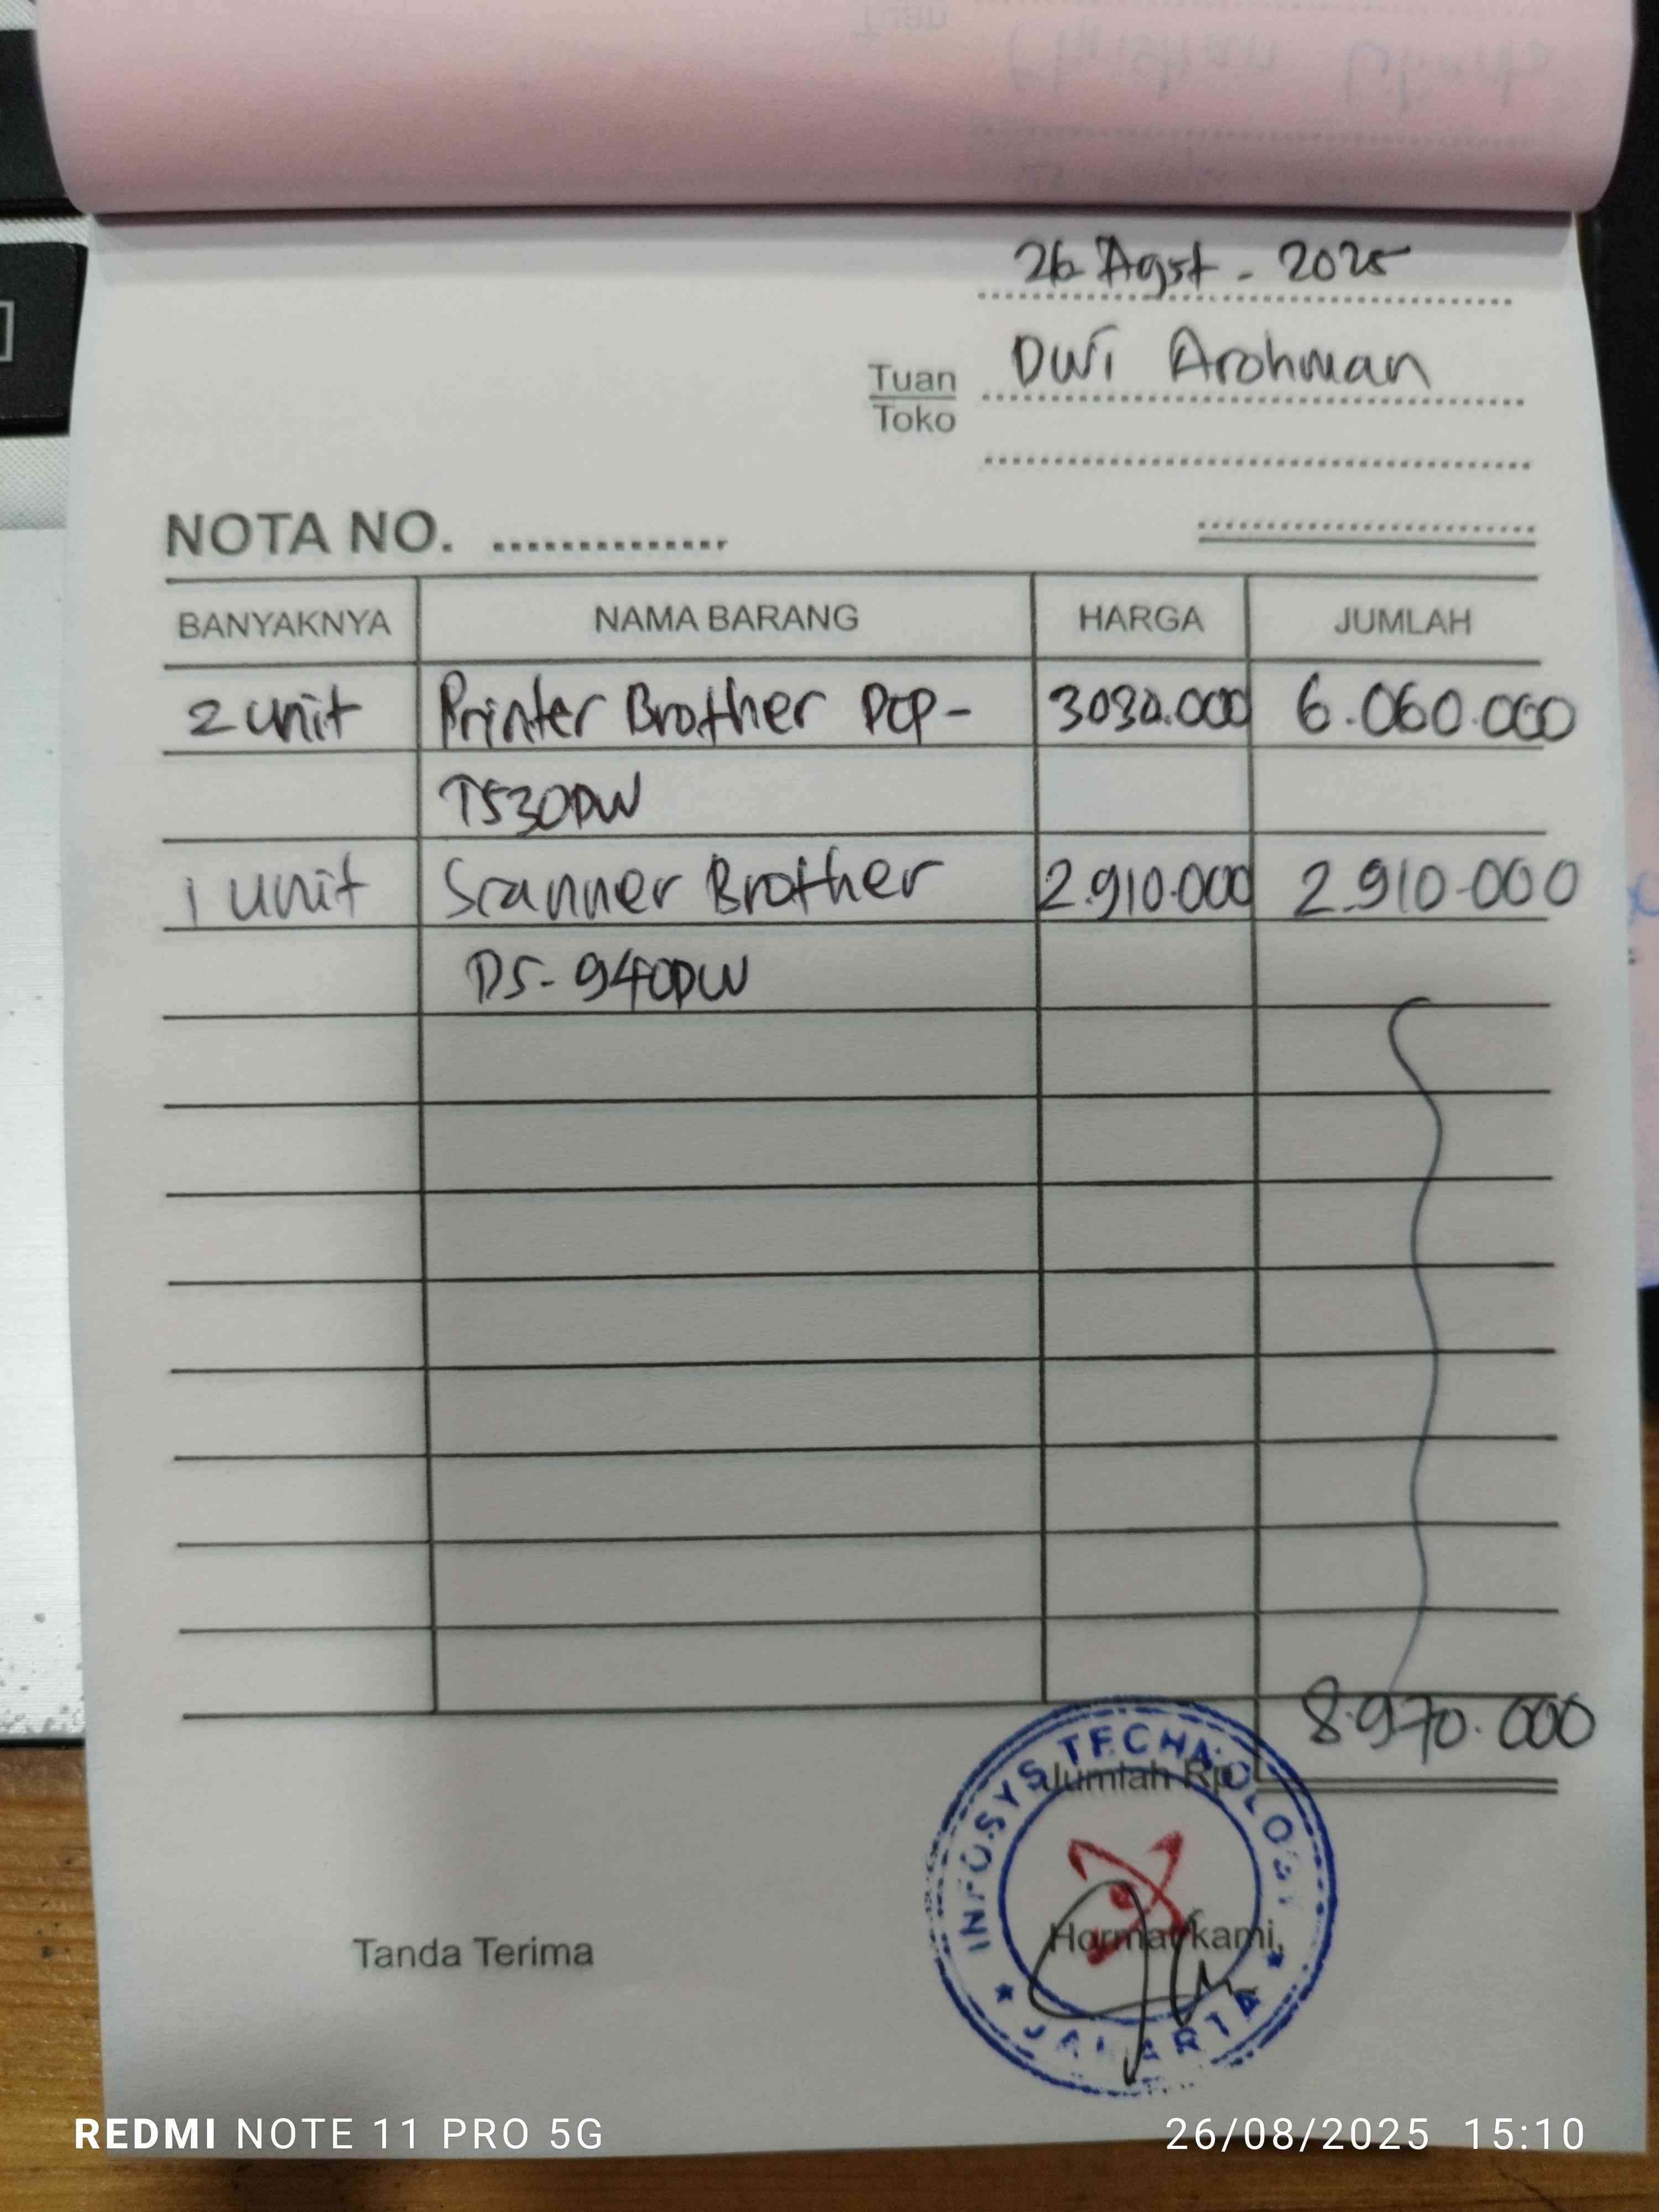 26 Agst - 2025
Tuan Dwi Arohman
Toko
NOTA NO. ...............
BANYAKNYA NAMA BARANG HARGA JUMLAH
2 unit Printer Brother DCP- 3030.000 6.060.000
T530DW
1 unit Scanner Brother 2.910.000 2.910.000
DS-940DW
8.970.000
Jumlah Rp.
INFOSYS TECHNOLOGY
Tanda Terima Hormat kami,
★ JAKARTA ★
REDMI NOTE 11 PRO 5G 26/08/2025 15:10